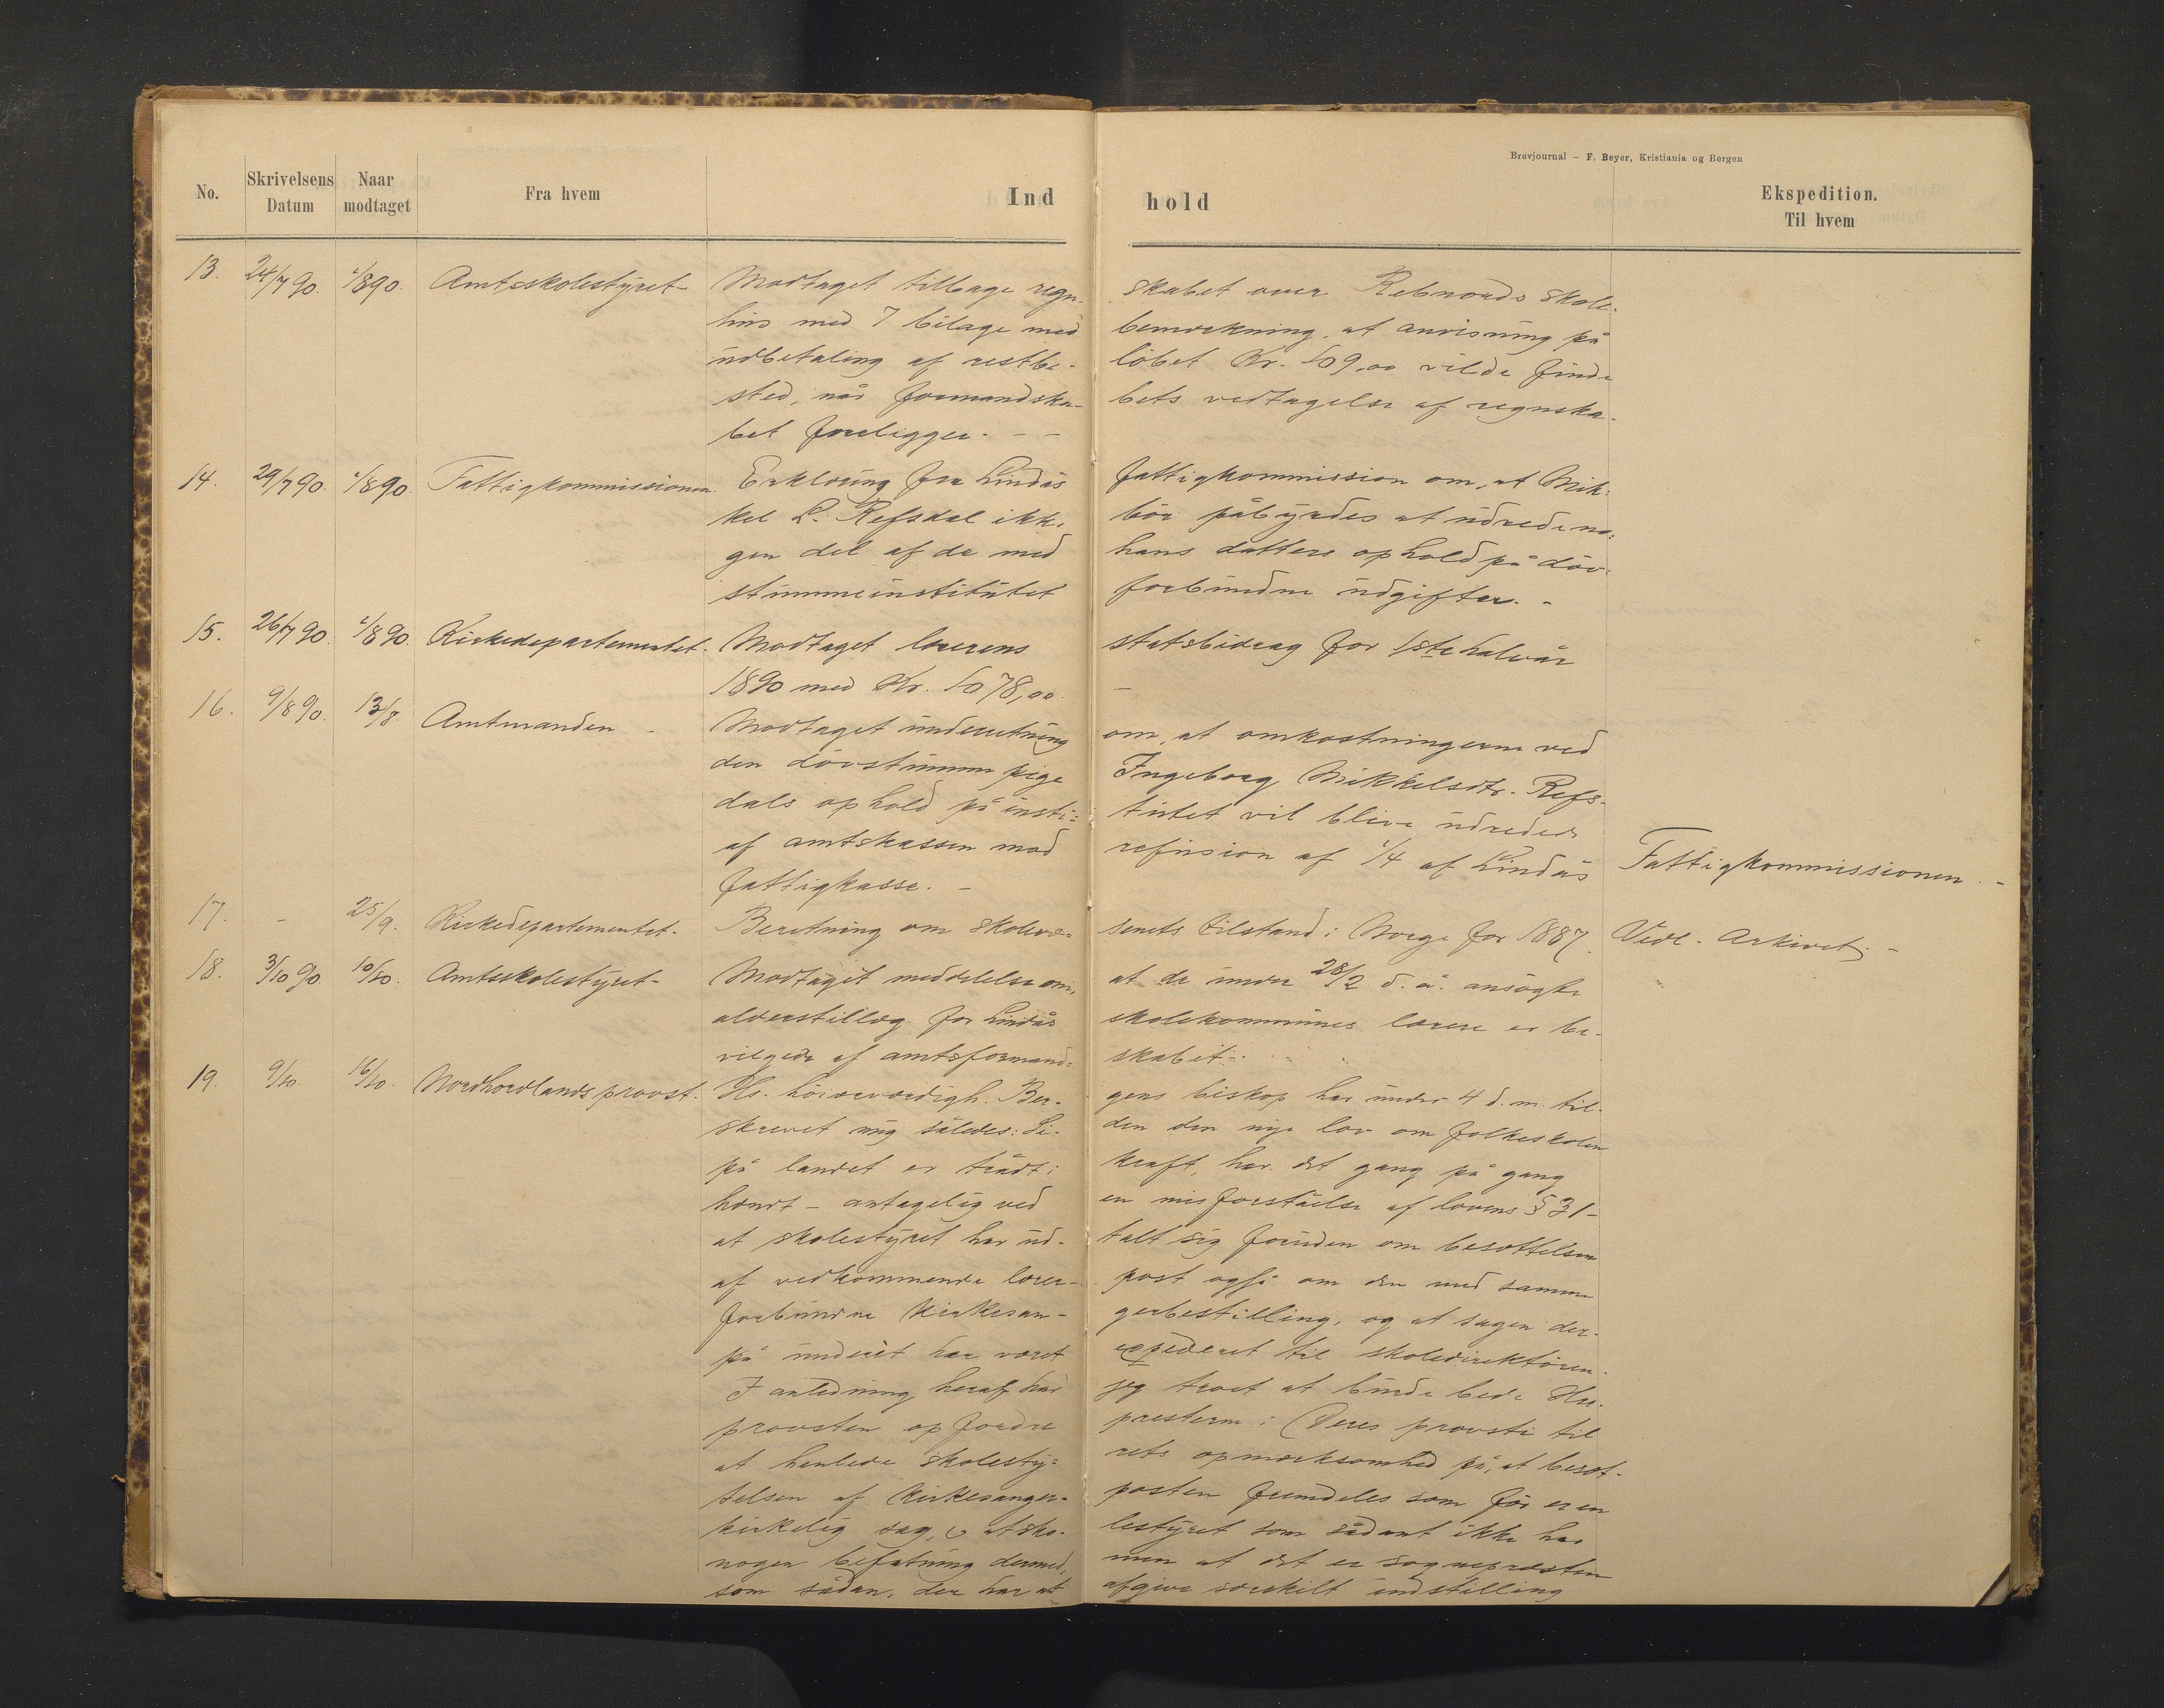 Brevjournal – F. Beyer, Kristiania og Bergen
No. Skrivelsens Datum Naar modtaget Fra hvem Ind hold Ekspedition. Til hvem
13. 24/7 90. 1/8 90. Amtsskolestyret- Modtaget tilbage regn- skabet over Rebnords skole-
hus med 7 bilage med bemærkning, at anvisning på
udbetaling af restbe- löbet Kr. 109,00 vilde finde
sted, når formandska- bets vedtagelse af regnska-
bet foreligger. - -
14. 29/7 90. 1/8 90. Fattigkommissionen. Erklæring fra Lindås fattigkommission om, at Mik-
kel L. Refsdal ikke bör påbyrdes at udrede no-
gen del af de med hans datters ophold på döv-
stummeinstitutet forbundne udgifter. -
15. 26/7 90. 1/8 90. Kirkedepartementet. Modtaget lærerens statsbidrag for 1ste halvår
1890 med Kr. 1078,00. -
16. 9/8 90. 13/8. Amtmanden - Modtaget underretning om, at omkostningerne ved
den dövstumme pige Ingeborg Mikkelsdtr. Refs-
dals ophold på insti- tutet vil blive udredede
af amtskassen mod refusion af 1/4 af Lindås Fattigkommissionen. -
fattigkasse. -
17. - 25/9. Kirkedepartementet. Beretning om skolevæ- senets tilstand i Norge for 1887. Vedl. Arkivet. -
18. 3/10 90. 10/10. Amtsskolestyret- Modtaget meddelelse om, at de under 28/2 d. å. ansøgte
alderstillæg for Lindås skolekommunes lærere er be-
vilgede af amtsformand- skabet.
19. 9/10. 16/10. Nordhordlands provst. Hs. höiærværdigh. Ber- gens biskop har under 4 d. m. til-
skrevet mig således: Si- den den nye lov om folkeskolen
på landet er trådt i kraft, har det gang på gang
hændt - antagelig ved en misforståelse af lovens § 31 -
at skolestyret har ud- talt sig foruden om besættelsen
af vedkommende lærer- post også om den med samme
forbundne kirkesan- gerbestilling, og at sagen der-
på underet har været expederet til skoledirektören.
I anledning heraf har jeg troet at burde bede Hr.
provsten opfordre presterne i Deres provsti til
at henlede skolesty- rets opmærksomhed på, at besæt-
telsen af kirkesanger- posten fremdeles som för er en
kirkelig sag, o at sko- lestyret som sådant ikke har
nogen befatning dermed, men at det er sognepræsten
som sådan, der har at afgive særskilt indstilling